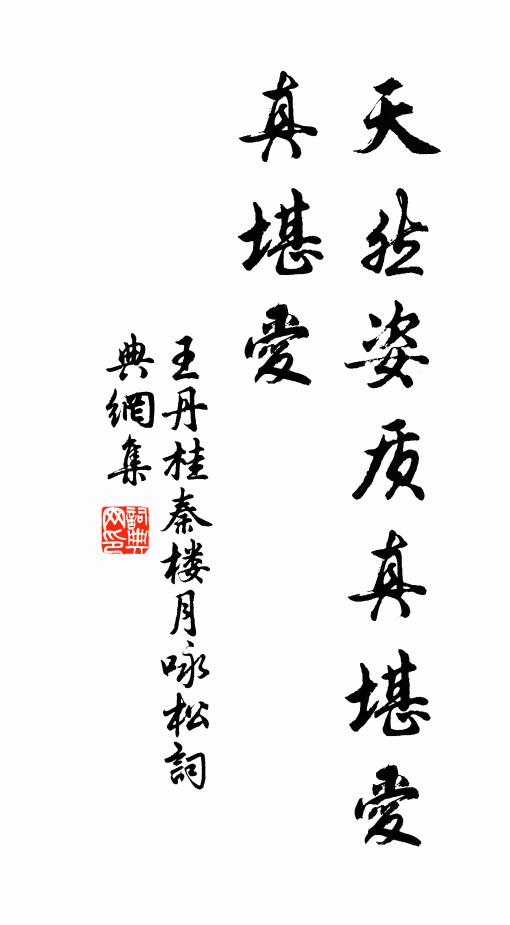 天然姿质真堪愛
真堪愛
王丹桂秦楼月咏松詞
典網集
詞典
网印